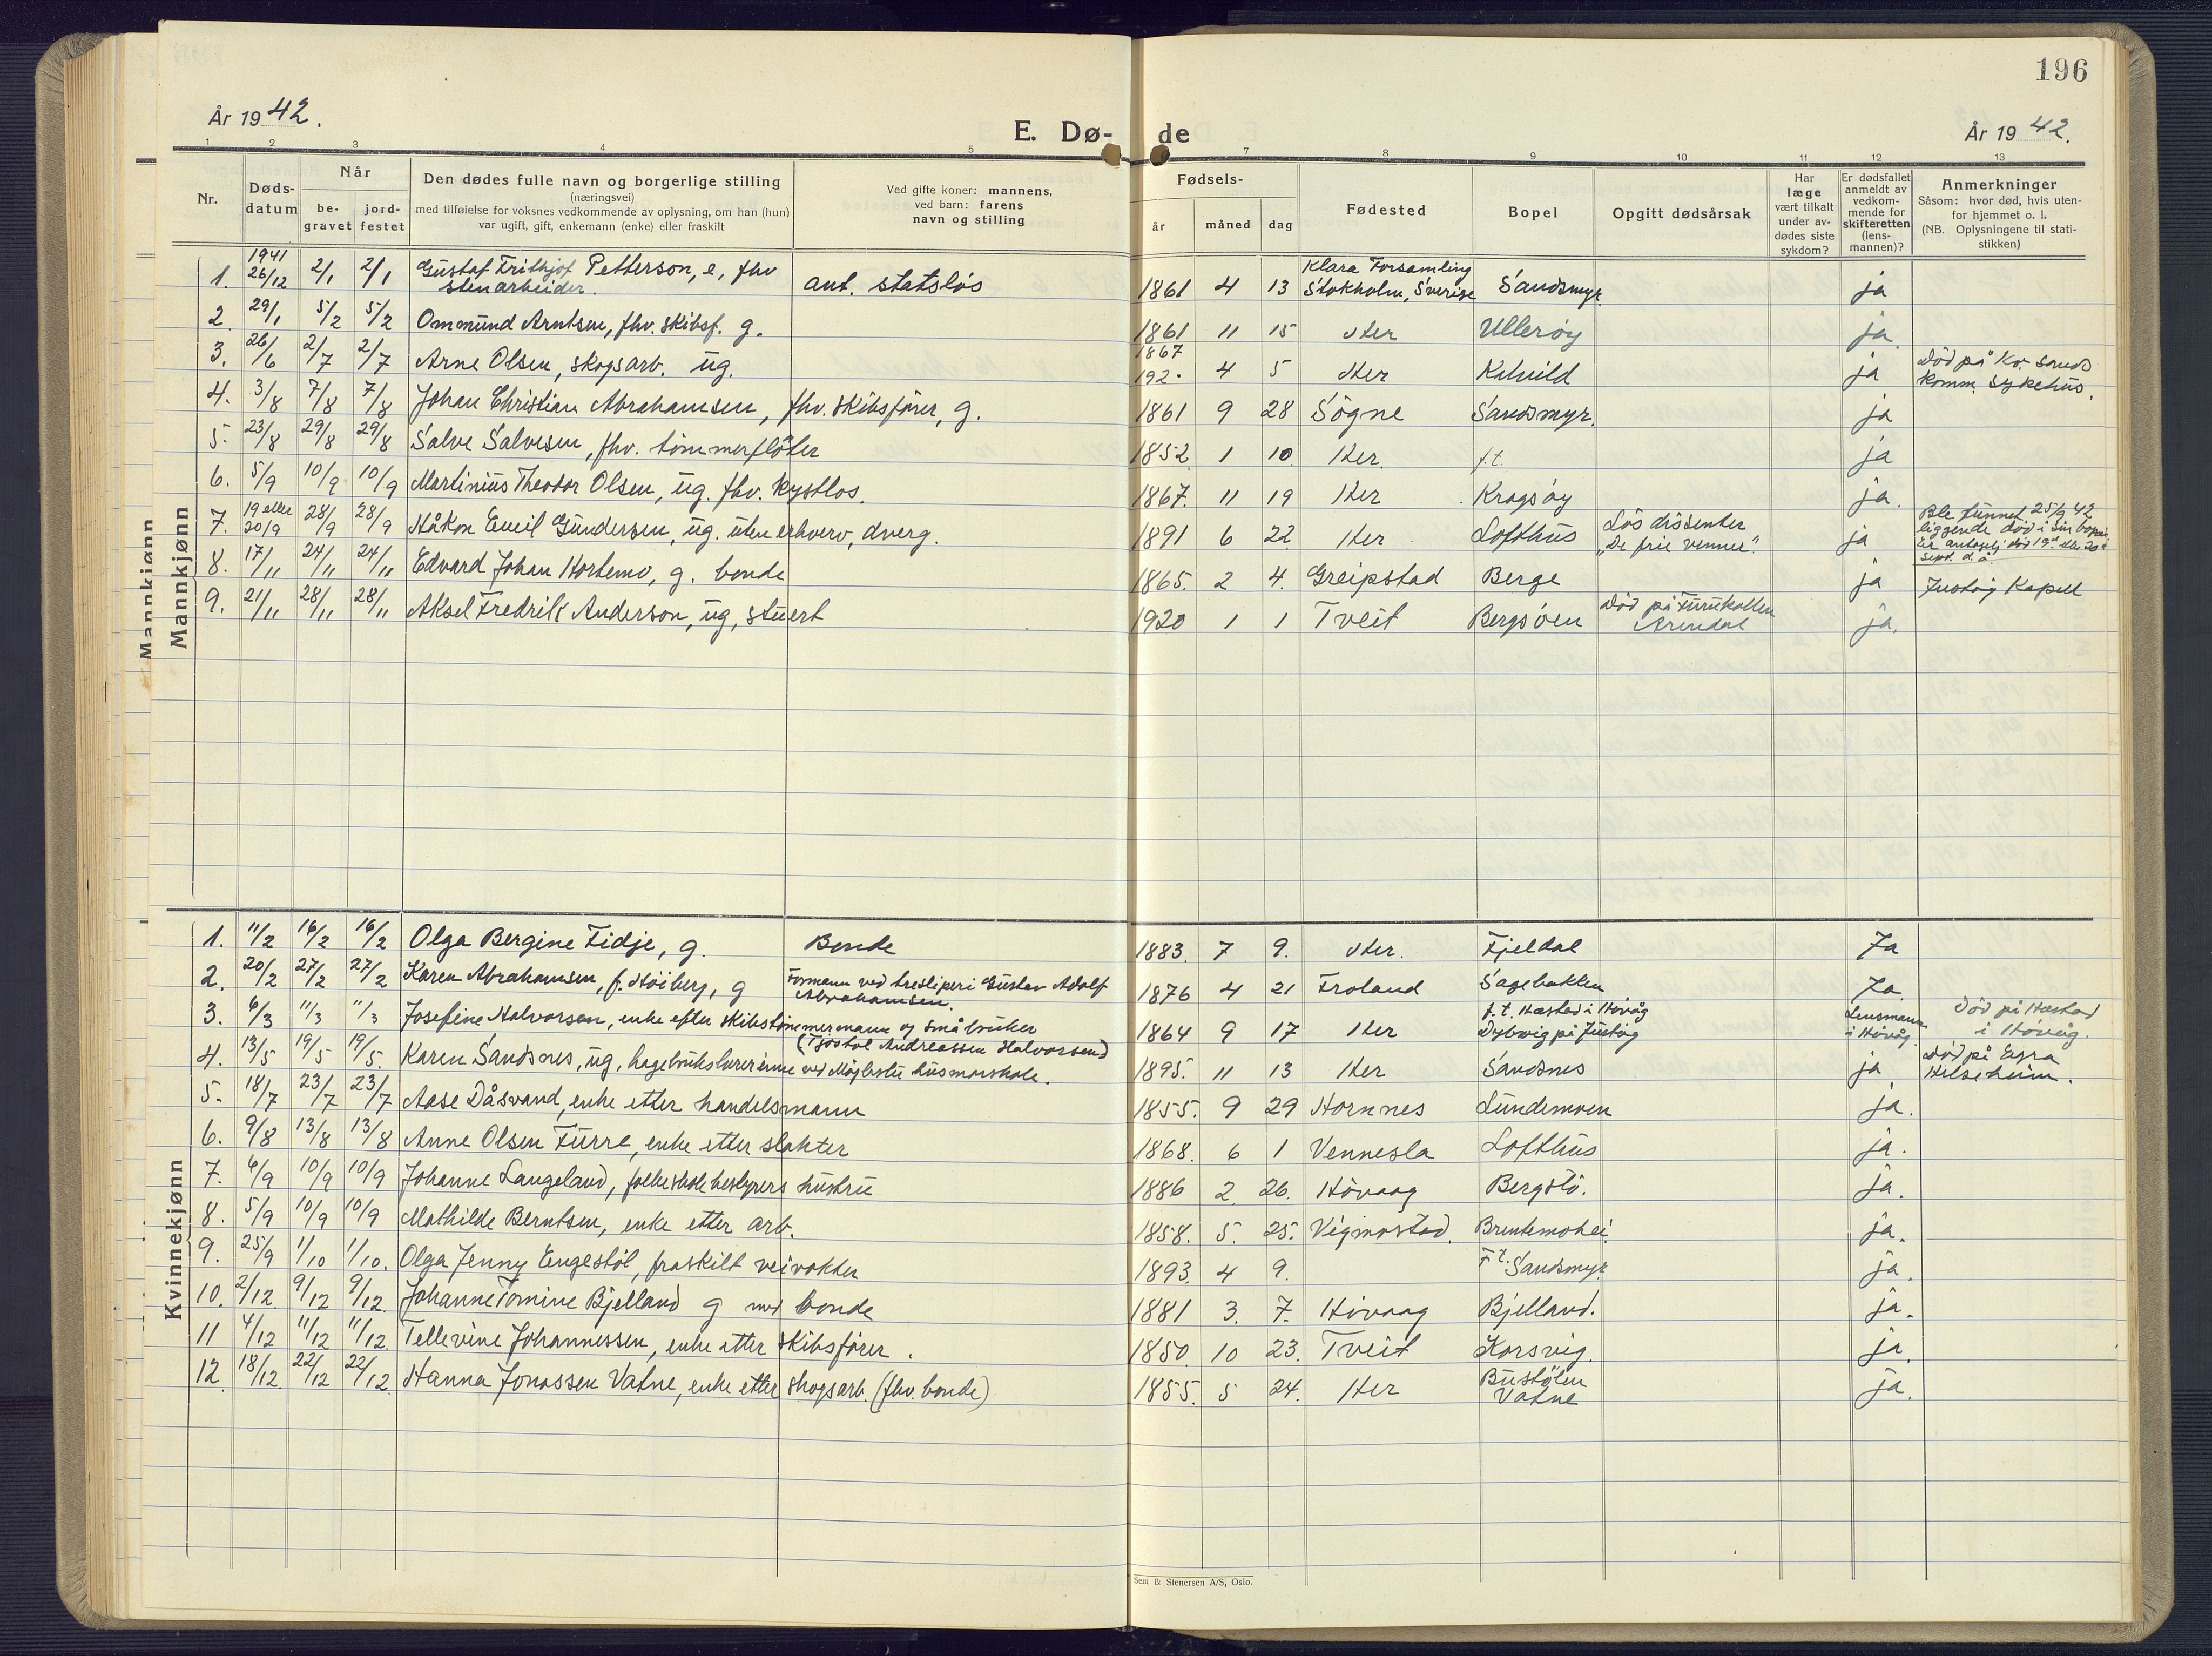 196
År 1942.
E. Dø-
de
År 1942.
1 2 3 4 5 7 8 9 10 11 12 13
Nr.
Døds-
datum
Når
be-
gravet
jord-
festet
Den dødes fulle navn og borgerlige stilling
(næringsvei)
med tilføielse for voksnes vedkommende av oplysning, om han (hun)
var ugift, gift, enkemann (enke) eller fraskilt
Ved gifte koner: mannens,
ved barn: farens
navn og stilling
Fødsels-
år måned dag
Fødested
Bopel
Opgitt dødsårsak
Har
læge
vært tilkalt
under av-
dødes siste
sykdom?
Er dødsfallet
anmeldt av
vedkom-
mende for
skifteretten
(lens-
mannen)?
Anmerkninger
Såsom: hvor død, hvis uten-
for hjemmet o. l.
(NB. Oplysningene til stati-
stikken)
Mannkjønn
Mannkjønn
1. 1941 26/12 2/1 2/1 Gustaf Frithjof Petterson, e, fhv stenarbeider. ant. statsløs 1861 4 13 Klara Forsamling Stokholm, Sverige Sandsmyr. ja
2. 29/1 5/2 5/2 Ommund Arntsen, fhv. skibsf. g. 1861 11 15 Her Ullerøy ja.
3. 26/6 2/7 2/7 Arne Olsen, skogsarb. ug. 1867 192. 4 5 Her Kalvild ja Død på Kr. sands komm. sykehus.
4. 3/8 7/8 7/8 Johan Christian Abrahamsen, fhv. skibsfører, g. 1861 9 28 Søgne Sandsmyr. ja
5. 23/8 29/8 29/8 Salve Salvesen, fhv. tømmerfløter 1852 1 10. Her f.t. ja
6. 5/9 10/9 10/9 Martinius Theodor Olsen, ug. fhv. kystlos. 1867. 11 19 Her Kragsøy ja.
7. 19 eller 20/9 28/9 28/9 Håkon Emil Gundersen, ug. uten erhverv, dverg. 1891 6 22 Her Lofthus Løs dissenter „De frie venner". ja Ble funnet 25/9 42 liggende død i sin Er antagelig død 19de eller 20de sept. d. å.
8. 17/11 24/11 24/11 Edvard Johan Hortemo, g. bonde 1865. 2 4. Greipstad Berge ja Justøy Kapell
9. 21/11 28/11 28/11 Aksel Fredrik Anderson, ug, stuert 1920 1 1 Tveit Bergsøen Død på Furukollen Arendal ja.
Kvinnekjønn
1. 11/2 16/2 16/2 Olga Bergine Tidje, g. Bonde 1883. 7 9. Her. Fjeldal Ja
2. 20/2 27/2 27/2 Karen Abrahamsen, f. Høiberg, g Formann ved tresliperi Gustav Adolf Abrahamsen. 1876 4 21 Froland Sagebakken Ja.
3. 6/3 11/3 11/3 Josefine Halvorsen, enke efter skibstømmermann og småbruker (Tjøstol Andreassen Halvorsen) 1864 9 17 Her f. t. Hæstad i Høvåg Dybvig på Justøy Lensmann i Høvåg. Død på Hæstad i Høvåg.
4. 13/5 19/5 19/5. Karen Sandsnes, ug, hagebrukslærerinne ved Møglestu husmorskole. 1895. 11 13 Her Sandsnes ja Død på Egra Helseheim.
5. 18/7 23/7 23/7 Aase Dåsvand, enke etter handelsmann 1855. 9 29 Hornnes Lundemoen ja.
6. 9/8 13/8 13/8 Anne Olsen Furre, enke etter slakter 1868. 6 1 Vennesla Lofthus ja.
7. 6/9 10/9 10/9 Johanne Langeland, folkeskolebestyrers hustru 1886 2 26. Høvaag Bergstø. ja.
8. 5/9 10/9 10/9 Mathilde Berntsen, enke etter arb. 1858. 5. 25. Vigmostad. Brentemohei. ja.
9. 25/9 1/10 1/10. Olga Jenny Engestøl, fraskilt veivokter 1893. 4 9. F.t. Sandsmyr. ja.
10. 2/12 9/12 9/12 Johanne Tomine Bjelland g med bonde 1881 3. 7. Høvaag Bjelland. ja.
11 4/12 11/12 11/12 Tellevine Johannessen, enke etter skibsfører. 1850. 10 23. Tveit Korsvig. ja.
12 18/12 22/12 22/12 Hanna Jonassen Vatne, enke etter skogsarb. (fhv. bonde) 1855. 5 24. Her Bustølen Vatne ja.
Sem & Stenersen A/S, Oslo.